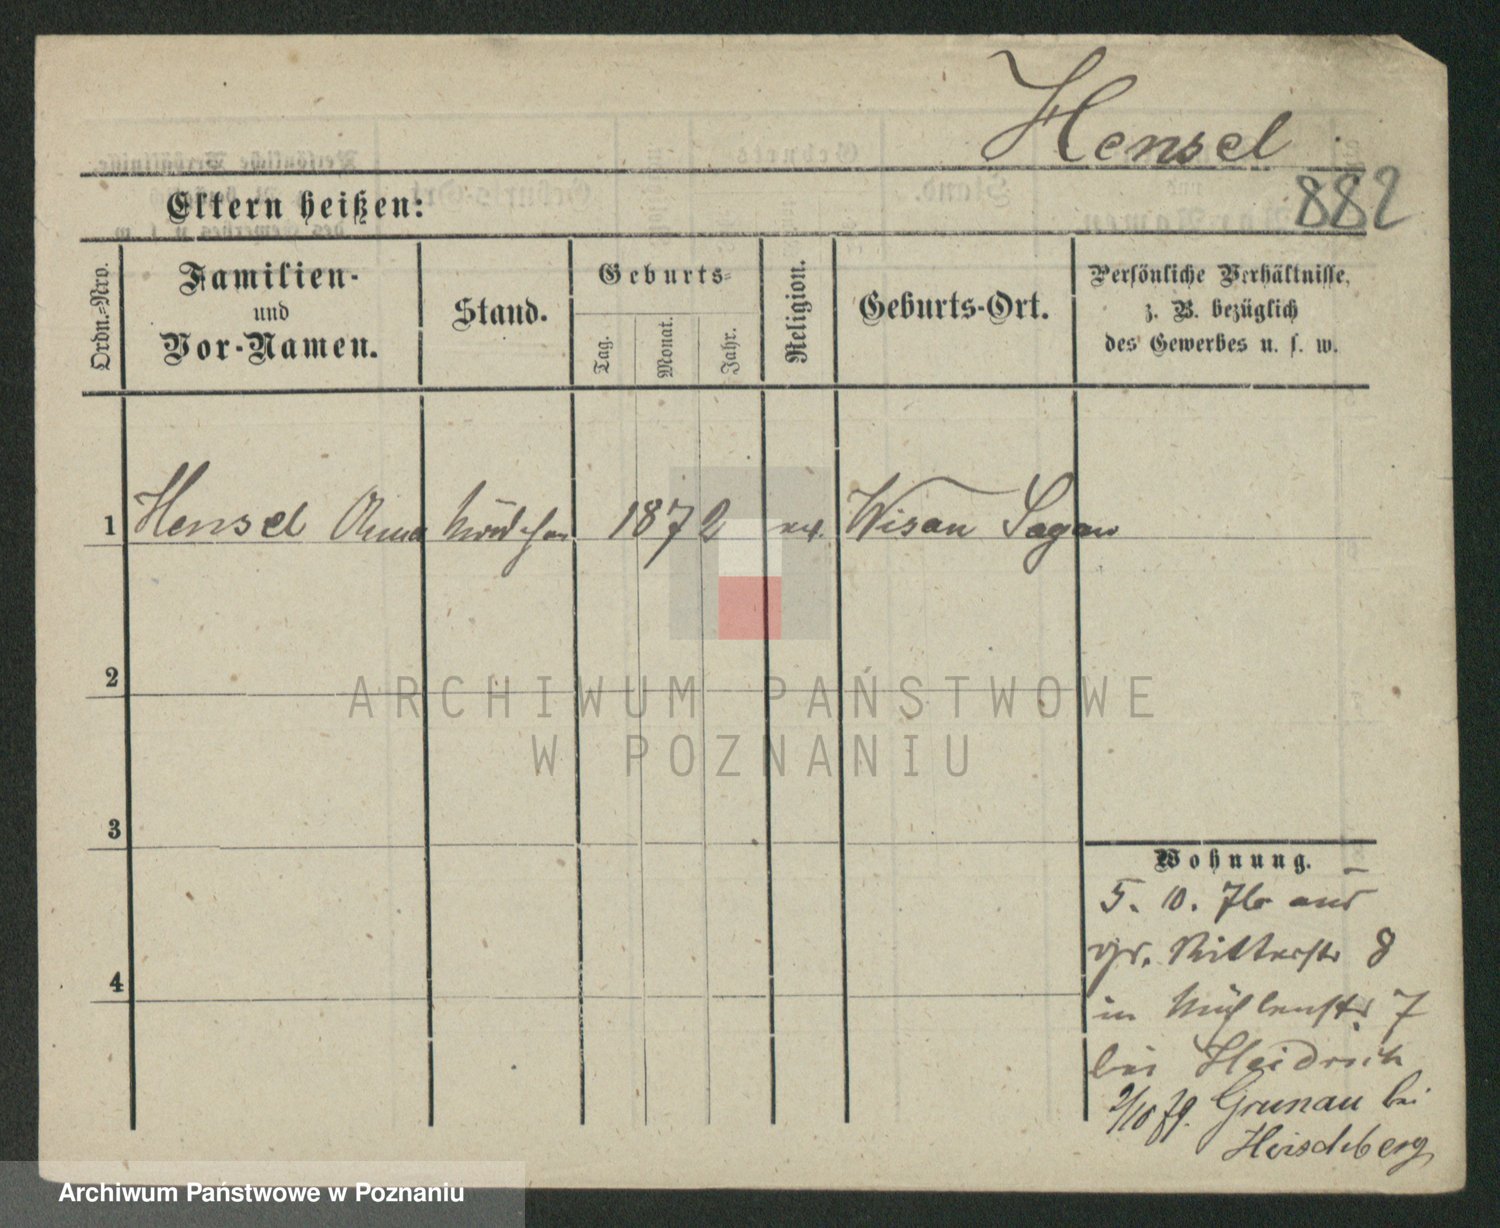 Hensel
882
Eltern heißen:
Ordn.=Nro.
Familien-
und
Vor-Namen.
Stand.
Geburts=
Tag.
Monat.
Jahr.
Religion.
Geburts-Ort.
Persönliche Verhältnisse,
z. B. bezüglich
des Gewerbes u. s. w.
1 Hensel Anna Mädchen 1872 Wisau Sagan
2
3
4
Wohnung.
5. 10. 76 aus
gr. Ritterstr 8
in Mühlenstr. 7
bei Heidrich
2/10 79. Grunau bei
Hirschberg
ARCHIWUM PAŃSTWOWE
W POZNANIU
Archiwum Państwowe w Poznaniu